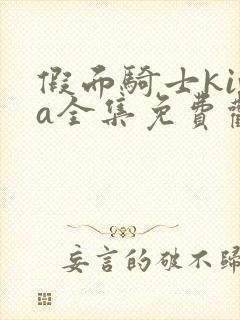 假面騎士ki
a全集免費觀
妄言的破不歸